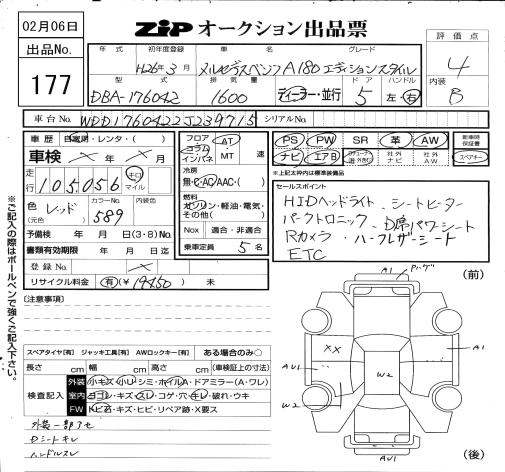 02月06日
出品No.
177
ZIP オークション出品票
評価点
4
内装
B
年式 初年度登録 車名 グレード
H26年3月 メルセデスベンツA180エディションスタイル
型式 排気量 ドア ハンドル
DBA-176042 1600 ディーラー・並行 5 左・右
車台No. WDD1760422J239715 シリアルNo.
車歴 自家用・レンタ・( )
車検 × 年 × 月
走行 105056 キロ マイル
色 レッド
(元色)
カラーNo. 589
予備検 年 月 日(3・8)No.
書類有効期限 年 月 日迄
登録No. ×
リサイクル料金 (有)(¥19450) 未
フロア コラム インパネ AT MT 速
冷房 無・C・AC・AAC・( )
燃料 ガソリン・軽油・電気・その他( )
Nox 適合・非適合
乗車定員 5 名
PS PW SR 革 AW
ナビ エアB 社外ナビ 社外AW
新車時保証書
スペアキー
※上記太枠内は標準装備品
セールスポイント
HIDヘッドライト、シートヒーター
パークトロニック、D席パワーシート
Rカメラ・ハーフレザーシート
ETC
※ご記入の際はボールペンで強くご記入下さい。
[注意事項]
スペアタイヤ[有] ジャッキ工具[有] AWロックキー[有] ある場合のみ○
長さ cm 幅 cm 高さ cm (車検証上の寸法)
検査記入
外装 小キズ・小レ・シミ・ホイルA・ドアミラー(A・ワレ)
室内 ヨゴレ・キズ・スレ・コゲ・穴・キレ・破れ・ウキ
FW トビA・キズ・ヒビ・リペア跡・X要ス
外装一部アセ
Dシートキレ
ハンドルスレ
(前)
A1
××
AU1
A1
W2
W2
AU1
(後)